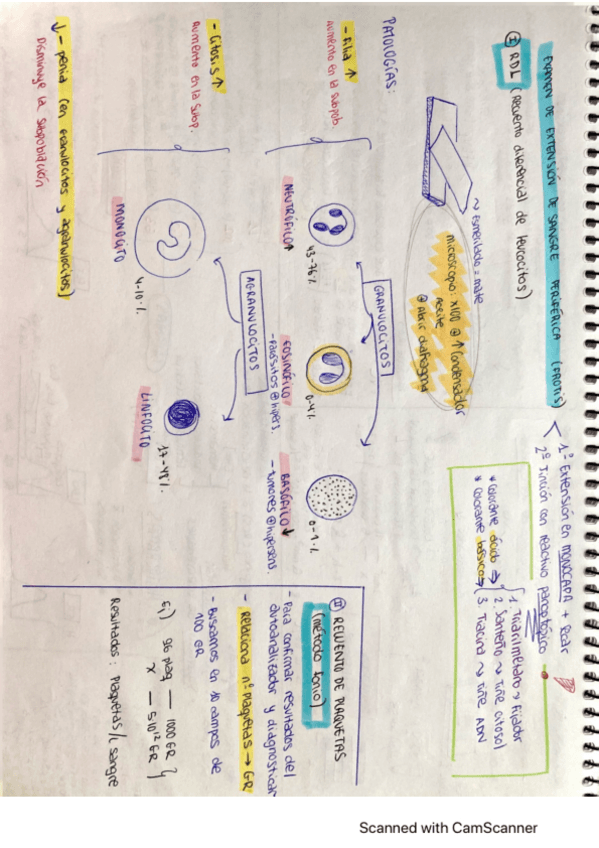 EXAMEN DE EXTENSIÓN DE SANGRE PERIFÉRICA (FROTIS)
1º Extensión en MONOCAPA + Secar
2º Tinción con reactivo panóptico
* Colorante ácido →
* Colorante básico →
1. Triarilmetano → Fijador
2. → Tiñe citosol
3. Tiacina → Tiñe ADN
I RDL (Recuento diferencial de leucocitos)
~ esmerilado = mate
microscopio: x100 ⊕ ↑ Condensador
Aceite
⊕ Abrir diafragma
PATOLOGÍAS:
- Filia ↑
aumento en la subpob.
- Citosis ↑
aumento en la subp.
↓ - penia (en granulocitos y agranulocitos)
Disminuye la subpoblación
GRANULOCITOS
43-76%
NEUTRÓFILO↑
0-4%
EOSINÓFILO
- Parásitos ⊕ hipers.
0-1%
BASÓFILO ↓
- tumores ⊕ hipersens.
AGRANULOCITOS
MONOCITO
4-10%
LINFOCITO
17-48%
II RECUENTO DE PLAQUETAS
(método Fonio)
- Para confirmar resultados del
autoanalizador y diagnosticar
- Relaciona nº plaquetas → GR
- Buscamos en 10 campos de
100 GR
Ej) 96 plaq — 1000 GR
x — 5·10¹² GR
Resultados: Plaquetas/L sangre
Scanned with CamScanner